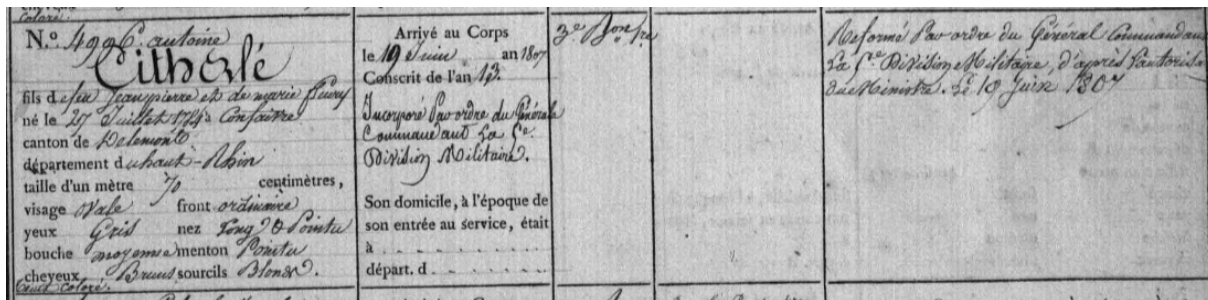 coloré.
N.º 4996. antoine
Citherlé
fils de feu Jean pierre et de marie fleury
né le 27 Juillet 1784 à Confaivre
canton de Delemont
département du haut-Rhin
taille d'un mètre 70 centimètres,
visage Ovale front ordinaire
yeux Gris nez Long & Pointu
bouche moyenne menton Pointu
cheveux Bruns sourcils Blonds.
teint coloré.
Arrivé au Corps
le 19 Juin an 1807
Conscrit de l'an 13.
Incorporé Par ordre du Générale
Commandant La 5e.
Division Militaire.
Son domicile, à l'époque de
son entrée au service, était
à
départ. d
3e Bon
Reformé Par ordre du Général Commandant
La 5e Division Militaire, d'après L'autorisa
du Ministre. Le 19 Juin 1807